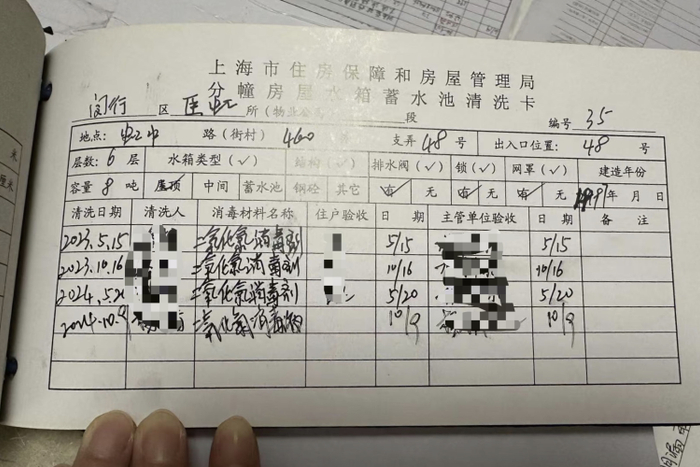 上海市住房保障和房屋管理局
分幢房屋水箱蓄水池清洗卡
闵行 区 所(物业公 段 编号 35
地点: 路(街村) 460 支弄 48 号 出入口位置: 48 号
层数: 6 层 水箱类型(✓) 结构(✓) 排水阀(✓) 锁(✓) 网罩(✓) 建造年份
容量 8 吨 屋顶 中间 蓄水池 钢砼 其它 有 无 有 无 有 无 1997年 月 日
清洗日期 清洗人 消毒材料名称 住户验收 日期 主管单位验收 日期 备注
2023.5.15 二氧化氯消毒剂 5/15 5/15
2023.10.16 二氧化氯消毒剂 10/16 10/16
2024.5.20 二氧化氯消毒剂 5/20 5/20
2024.10.9 二氧化氯消毒剂 10/9 10/9